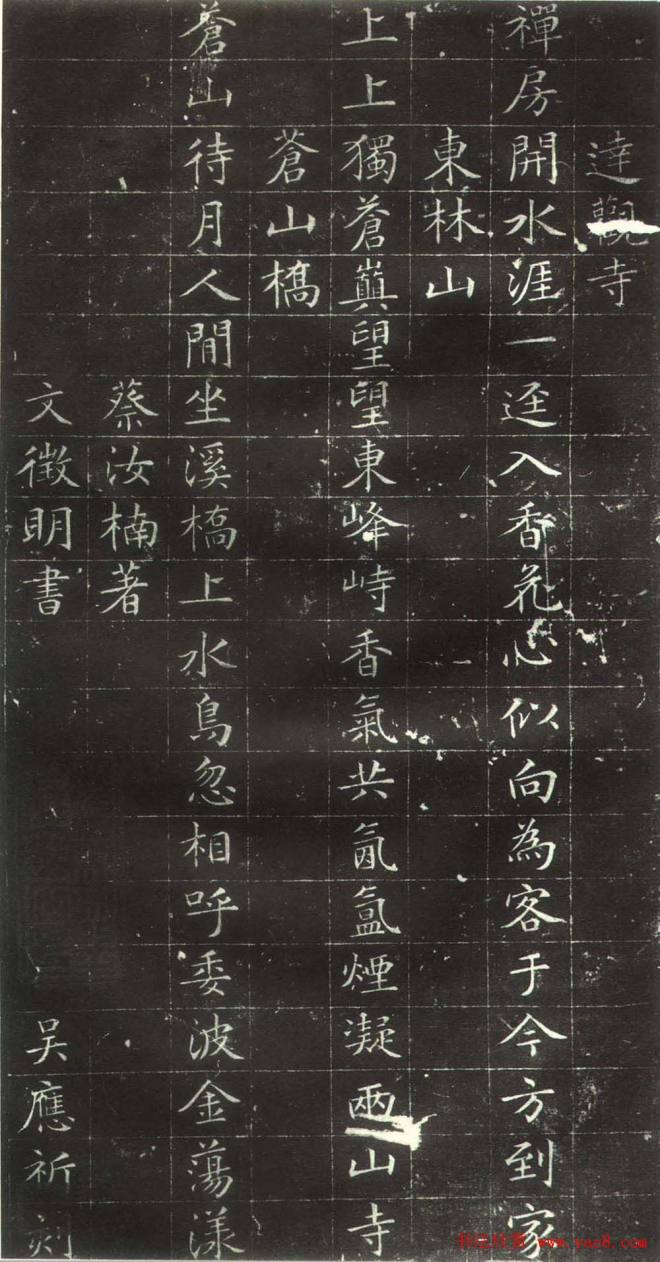 達觀寺
禪房開水涯一逕入香花心似向為客于今方到家
東林山
上上獨蒼巔望望東峰峙香氣共氤氳煙凝兩山寺
蒼山橋
蒼山待月人閒坐溪橋上水鳥忽相呼委波金蕩漾
蔡汝楠著
文徵明書
吳應祈刻
www.yac8.com